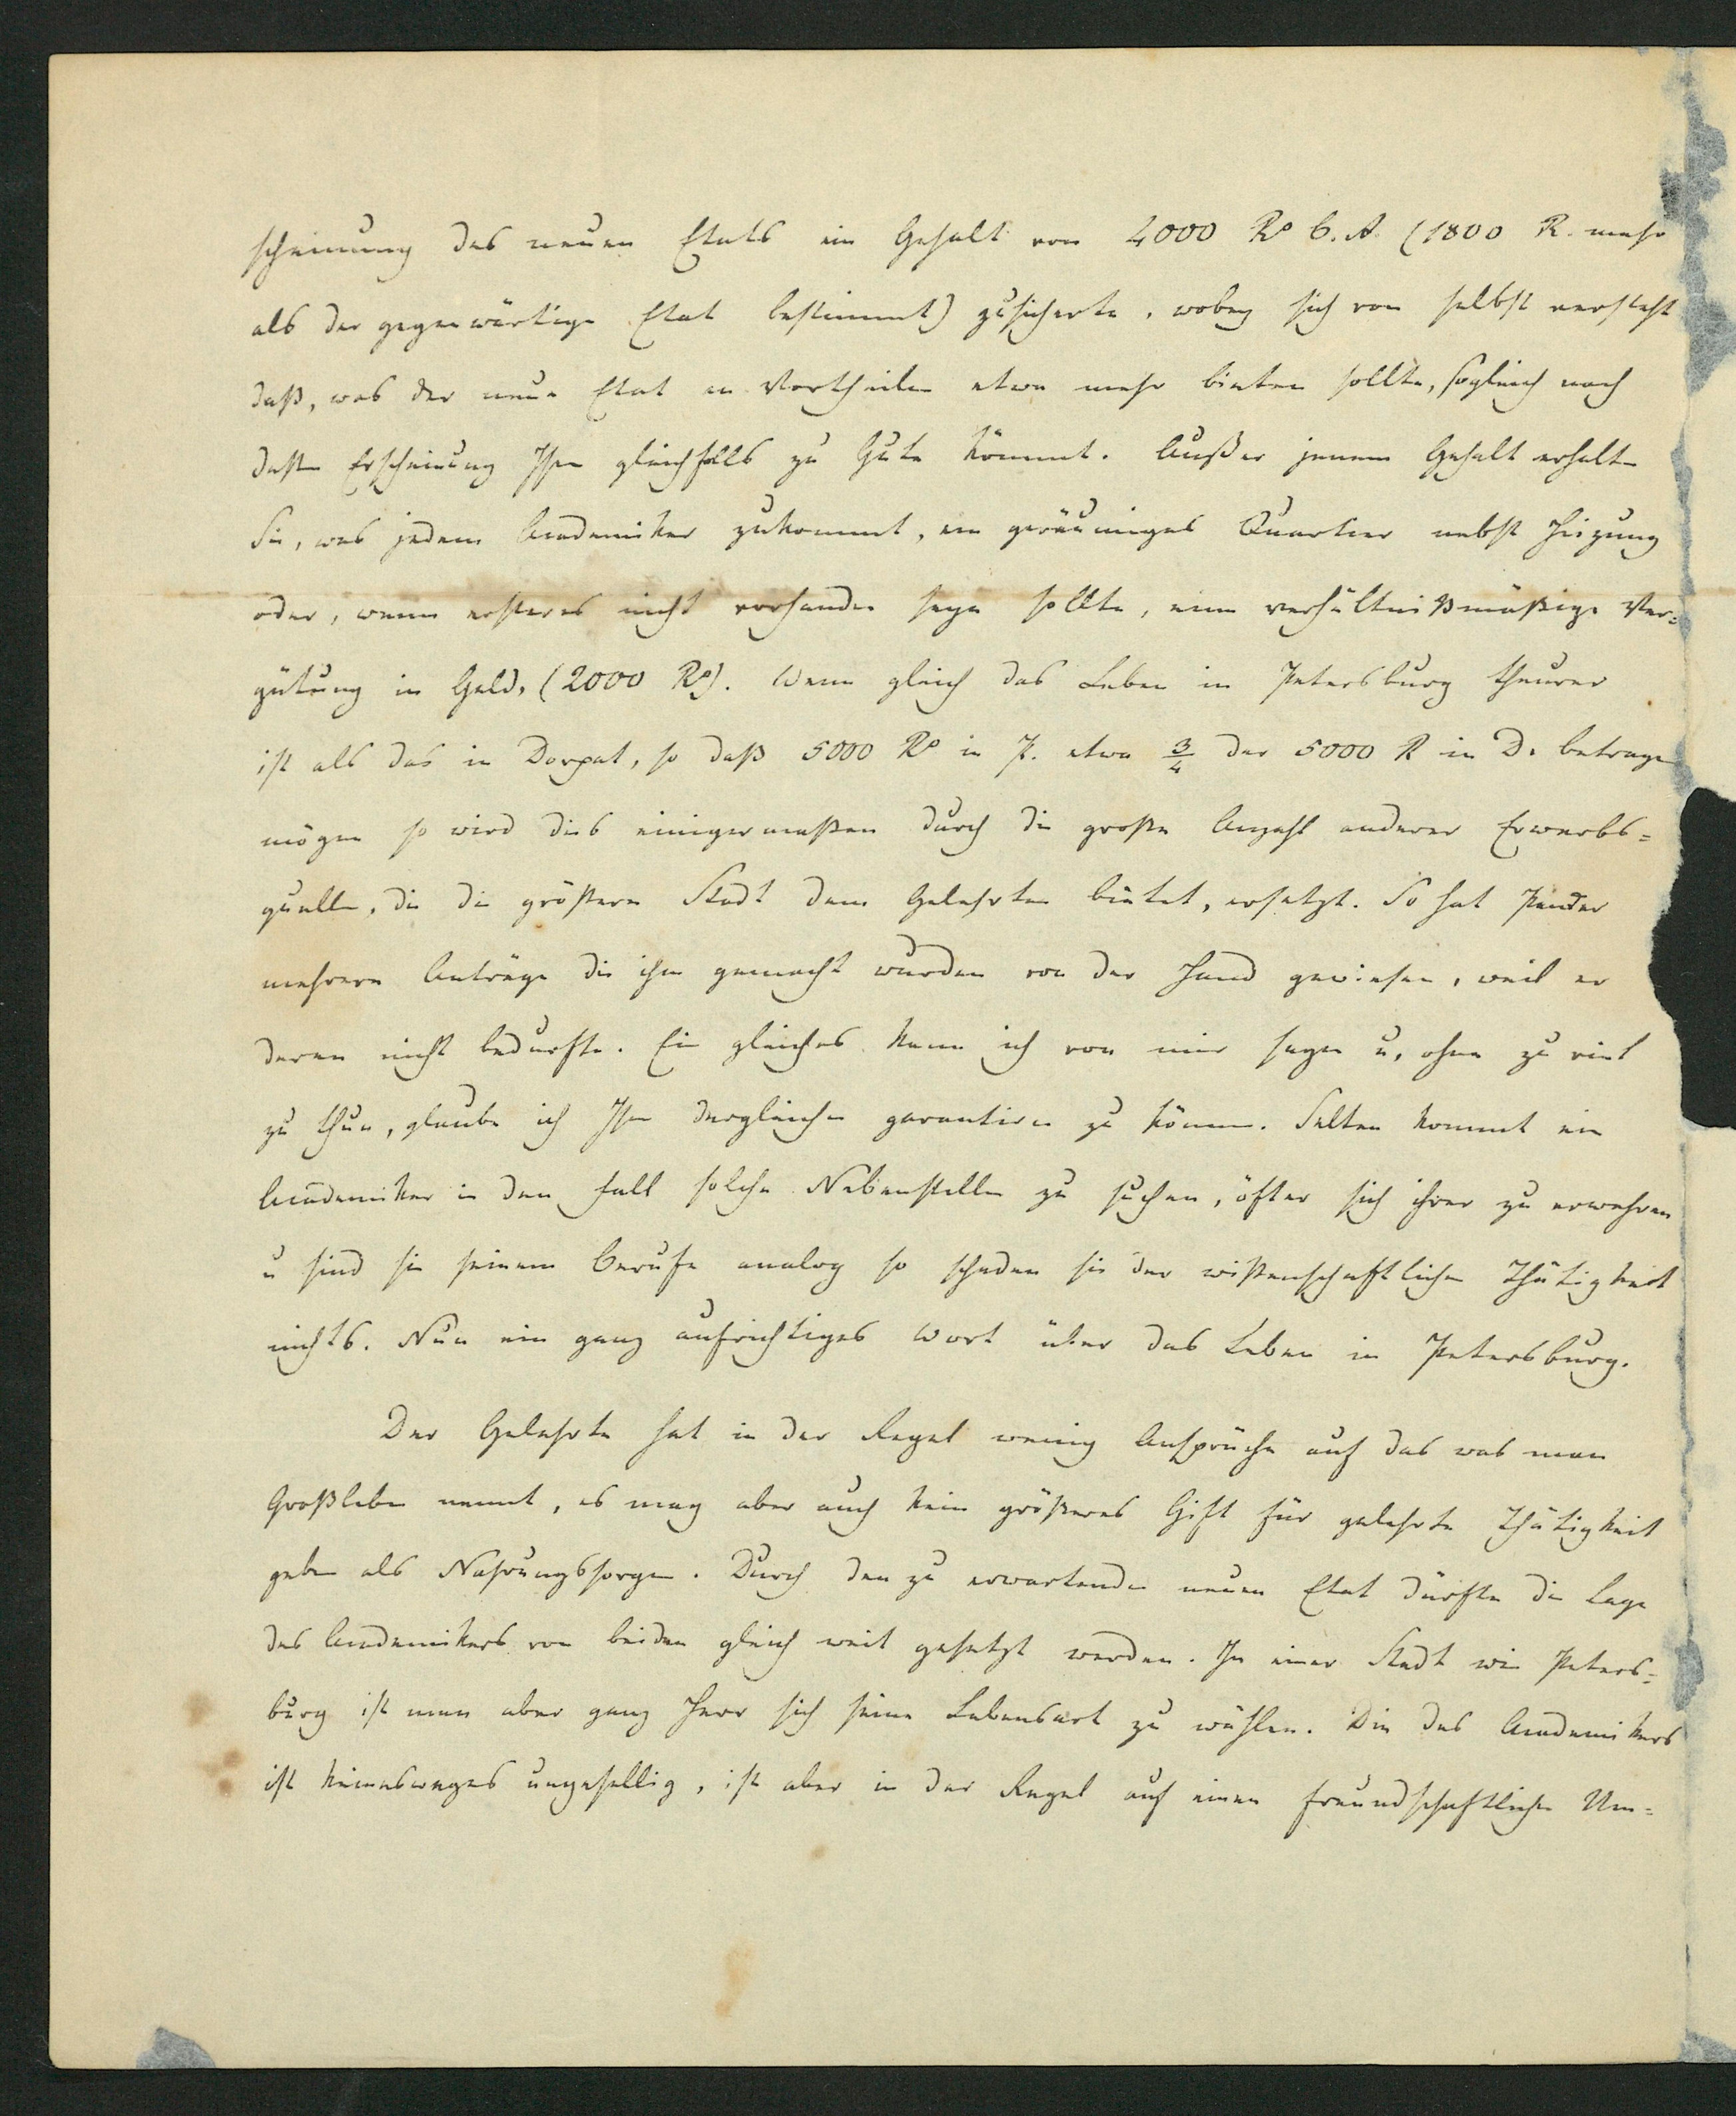 scheinung des neuen Etats ein Gehalt von 4000 Ro B. A. (1800 R. mehr
als der gegenwärtige Etat bestimmt) zusicherte, wobey sich von selbst versteht
daß, was der neue Etat an Vortheilen etwa mehr bieten sollte, sogleich nach
deßen Erscheinung Ihnen gleichfalls zu Gute kömmt. Außer jenem Gehalt erhalten
Sie, was jedem Academiker zukommt, ein geräumiges Quartier nebst Heizung
oder, wenn ersteres nicht vorhanden seyn sollte, eine verhältnißmäßige Ver=
gütung in Geld, (2000 Ro). Wenn gleich das Leben in Petersburg theurer
ist als das in Dorpat, so daß 5000 Ro in P. etwa 3/4 der 5000 R in D. betragen
mögen so wird dies einigermaßen durch die große Anzahl anderer Erwerbs=
quellen, die die größere Stadt dem Gelehrten bietet, ersetzt. So hat Pander
mehrere Anträge die ihm gemacht wurden von der Hand gewiesen, weil er
deren nicht bedurfte. Ein gleiches kann ich von mir sagen u, ohne zu viel
zu thun, glaube ich Ihnen dergleichen garantiren zu können. Selten kommt ein
Academiker in den Fall solche Nebenstellen zu suchen, öfter sich ihrer zu erwehren
u sind sie seinem Berufe analog so schaden sie der wißenschaftlichen Thätigkeit
nichts. Nun ein ganz aufrichtiges Wort über das Leben in Petersburg.
Der Gelehrte hat in der Regel wenig Ansprüche auf das was man
Großleben nennt, es mag aber auch kein größeres Gift für gelehrte Thätigkeit
geben als Nahrungssorgen. Durch den zu erwartenden neuen Etat dürfte die Lage
des Academikers von beiden gleich weit gesetzt werden. In einer Stadt wie Peters=
burg ist man aber ganz Herr sich seine Lebensart zu wählen. Die des Academikers
ist keinesweges ungesellig, ist aber in der Regel auf einen freundschaftlichen Um=